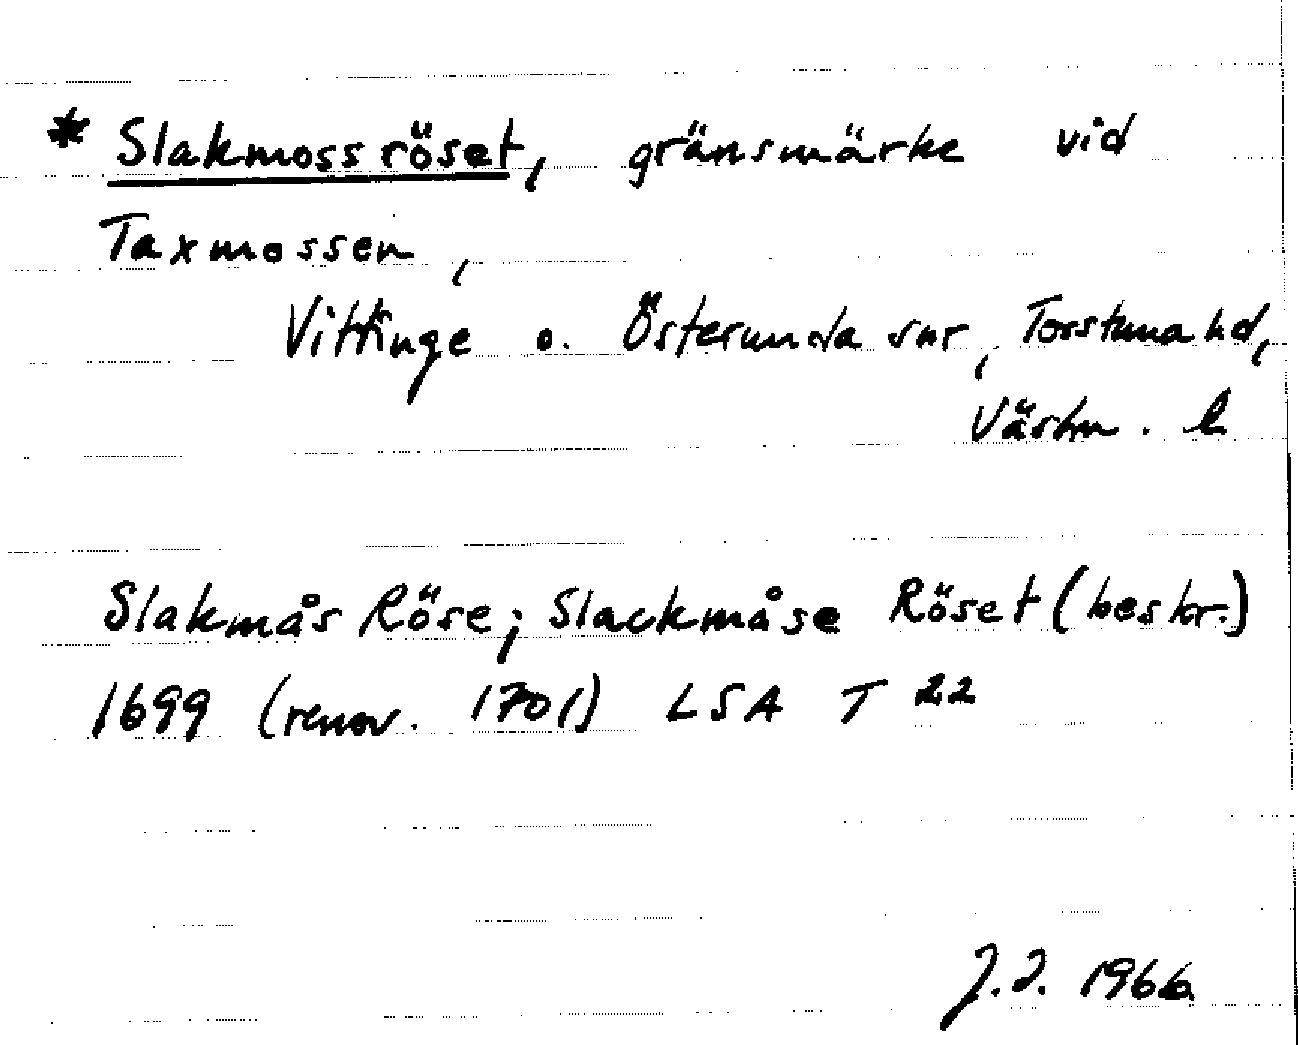 * Slakmossröset, gränsmärke vid
Taxmossen,
Vittinge o. Österunda snr, Torstuna hd,
Västm. l
Slakmås Röse; Slackmåse Röset (beskr.)
1699 (renov. 1701) LSA T 22
J.J. 1966